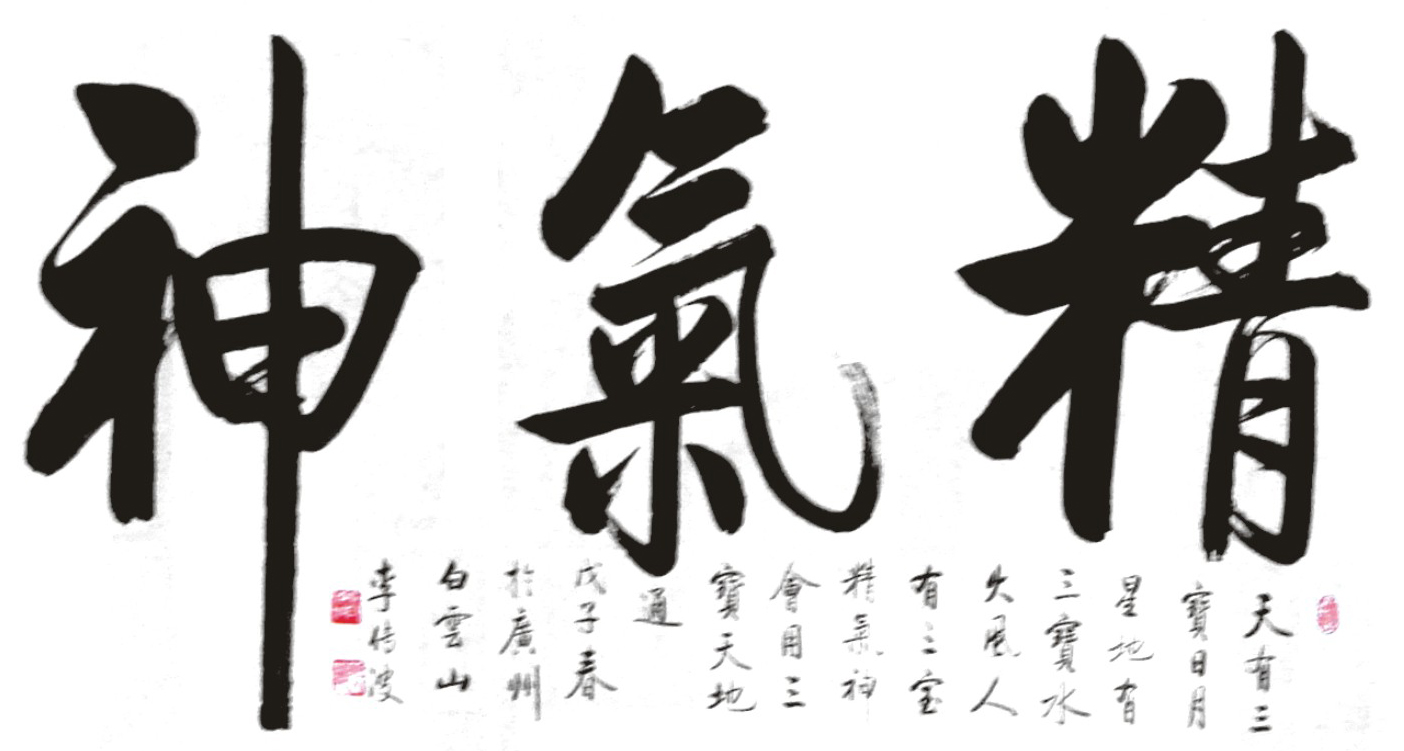 精氣神
天有三
寶日月
星地有
三寶水
火風人
有三宝
精氣神
會用三
寶天地
通
戊子春
於廣州
白雲山
李传波